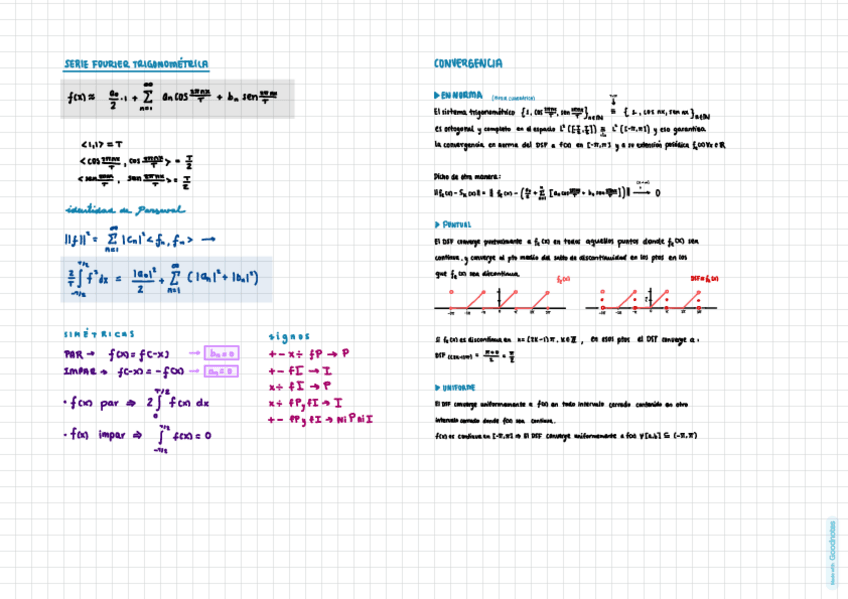 SERIE FOURIER TRIGONOMÉTRICA
f(x) ≈ a₀/2 · 1 + ∑_{n=1}^{∞} aₙ cos 2πnx/T + bₙ sen 2πnx/T
<1,1> = T
<cos 2πnx/T , cos 2πnx/T> = T/2
<sen 2πnx/T , sen 2πnx/T> = T/2
identidad de Parseval
||f||² = ∑_{n=1}^{∞} |cₙ|² <fₙ, fₙ> →
2/T ∫_{-T/2}^{T/2} f² dx = |a₀|²/2 + ∑_{n=1}^{∞} (|aₙ|² + |bₙ|²)
SIMÉTRICAS
PAR → f(x) = f(-x) → bₙ = 0
IMPAR → f(-x) = -f(x) → aₙ = 0
· f(x) par ⇒ 2 ∫_{0}^{T/2} f(x) dx
· f(x) impar ⇒ ∫_{-T/2}^{T/2} f(x) = 0
signos
+ - x ÷ fP → P
+ - fI → I
x ÷ fI → P
x ÷ fP y fI → I
+ - fP y fI → Ni P ni I
CONVERGENCIA
▶ EN NORMA
El sistema trigonométrico {1, cos 2πnx/T, sen 2πnx/T}_{n∈N} = {1, cos nx, sen nx}_{n∈N}
es ortogonal y completo en el espacio L²([-T/2, T/2]) = L²([-π,π]) y eso garantiza
la convergencia en norma del DSF a f(x) en [-π,π] y a su extensión periódica
Dicho de otra manera:
→ 0
▶ PUNTUAL
El DSF converge puntualmente a fₑ(x) en todos aquellos puntos donde fₑ(x) sea
continua, y converge al pto medio del salto de discontinuidad en los ptos en los
que fₑ(x) sea discontinua.
fₑ(x)
DSF fₑ(x)
Si fₑ(x) es discontinua en x=(2k-1)π, k∈Z, en esos ptos el DSF converge a:
DSF = π+0/2 = π/2
▶ UNIFORME
El DSF converge uniformemente a f(x) en todo intervalo cerrado contenido en otro
intervalo cerrado donde f(x) sea continua.
f(x) es continua en [-π,π] ⇒ El DSF converge uniformemente a f(x) ∀[a,b] ⊆ (-π,π)
Made with Goodnotes